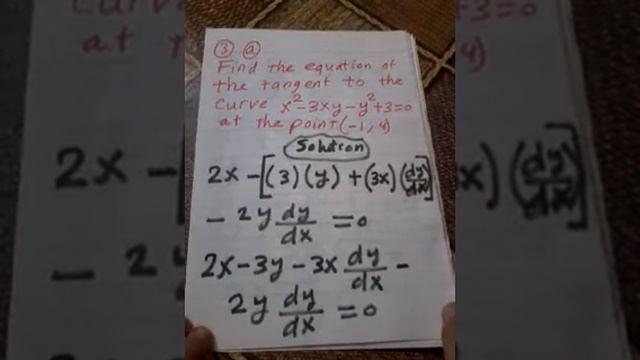 3 a
Find the equation of
the tangent to the
curve x²-3xy-y²+3=0
at the point (-1,4)
Solution
2x -[(3)(y) + (3x)(dy/dx)]
- 2y dy/dx = 0
2x-3y-3x dy/dx -
2y dy/dx = 0